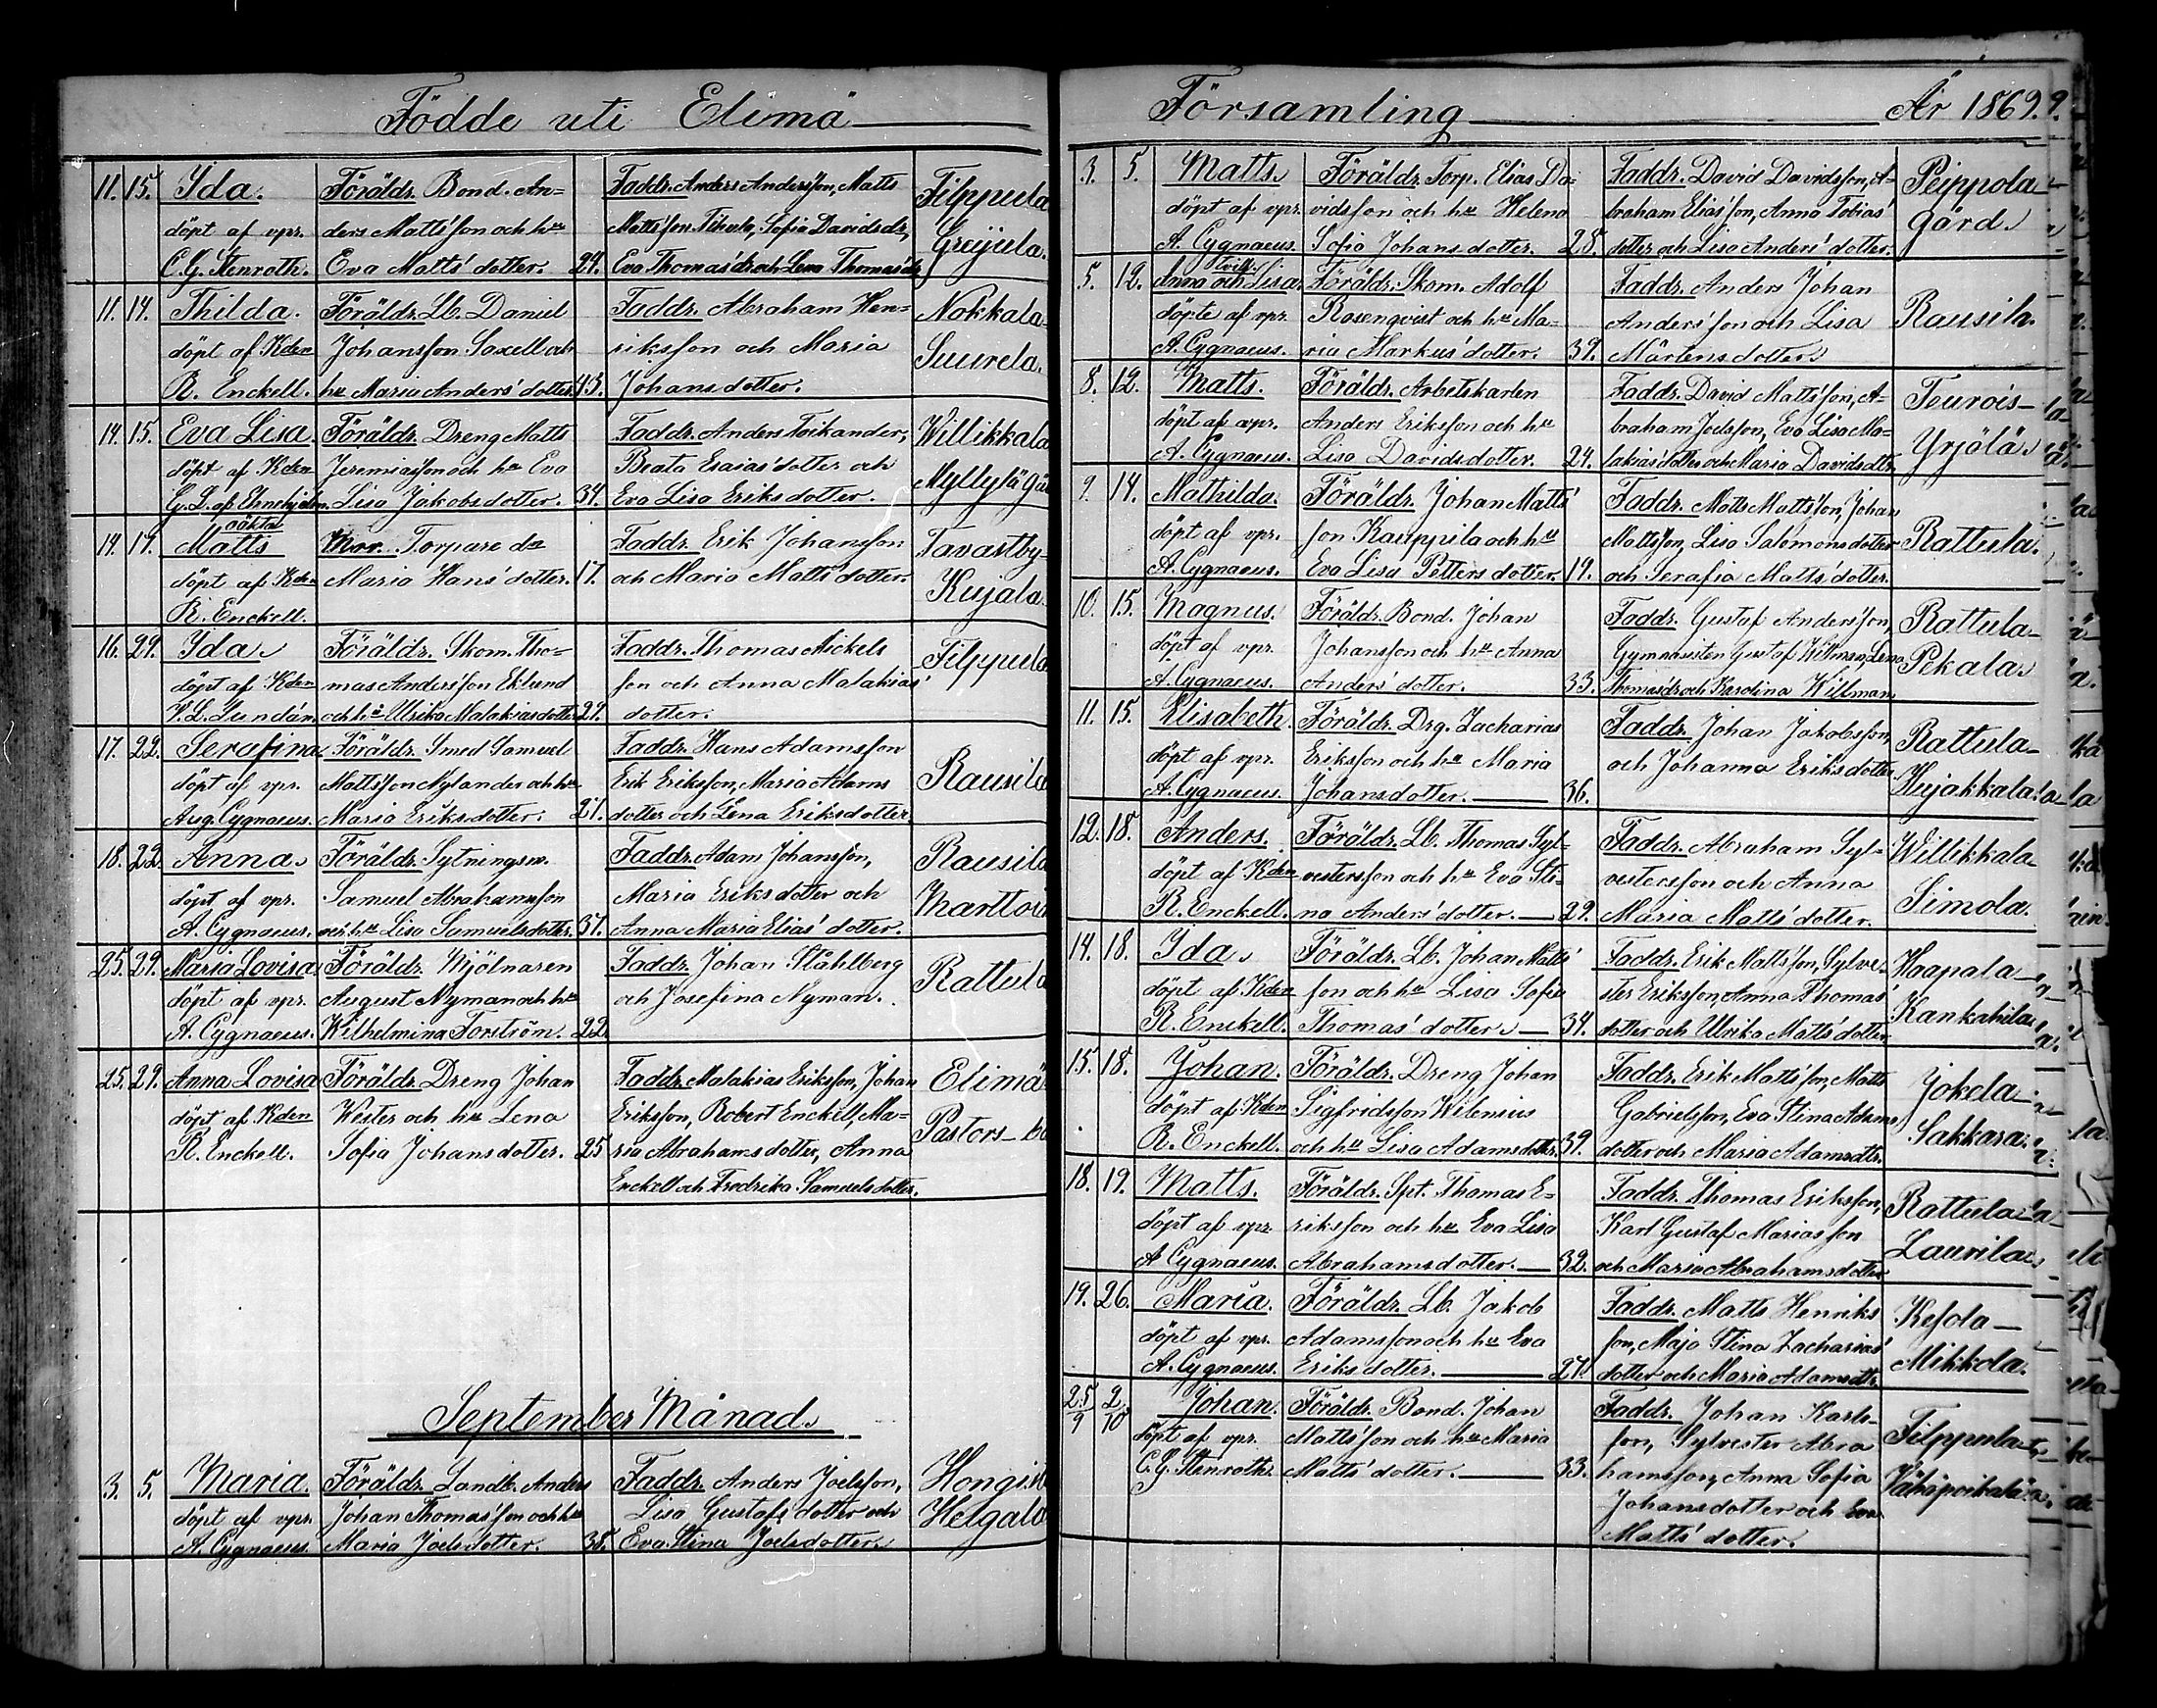 Födde uti Elimä
11. 15. Ida. Föräldr. Bond. An= Faddr. Anders Andersson, Matts Filppula
döpt af vpr. ders Mattsson och hu Mattsson Tihula, Sofia Davidsdr, Greijula.
C. G. Stenroth. Eva Matts' dotter. 24. Eva Thomas'dr och Lena Thomas'dr
11. 14. Thilda. Föräldr. Lb. Daniel Faddr. Abraham Hen= Nokkala
döpt af Kden Johansson Saxell och riksson och Maria Suurela.
R. Enckell. hu Maria Anders' dotter 43. Johansdotter.
14. 15. Eva Lisa. Föräldr. Dreng Matts Faddr. Anders Toikander, Willikkala
döpt af Kden Jeremiasson och hu Eva Beata Esaias' dotter och Myllylä
Lisa Jakobsdotter. 34. Eva Lisa Eriksdotter.
oäkta
14. 19. Matts Mor. Torpare dr Faddr. Erik Johansson Tavastby-
döpt af Kden Maria Hans' dotter. 17. och Maria Matts' dotter. Kujala.
R. Enckell.
16. 29. Ida. Föräldr. Skom. Tho= Faddr. Thomas Mickels Filppula
döpt af Kden mas Andersson Eklund son och Anna Malakias'
V. L. Lundán. och hu Ulrika Malakiasdotter 29. dotter.
17. 22. Serafina Föräldr. Smed Samuel Faddr. Hans Adamsson Rausila
döpt af vpr. Mattsson Nylander och hu Erik Eriksson, Maria Adams
Aug. Cygnaeus. Maria Eriksdotter. 21. dotter och Lena Eriksdotter
18. 22. Anna. Föräldr. Sytningsm. Faddr. Adam Johansson, Rausila
döpt af vpr. Samuel Abrahamsson Maria Eriksdotter och Marttois
A. Cygnaeus. och hu Lisa Samuelsdotter. 37. Anna Maria Elias' dotter.
25. 29. Maria Lovisa Föräldr. Mjölnaren Faddr. Johan Ståhlberg Rattula
döpt af vpr. August Nyman och hu och Josefina Nyman.
A. Cygnaeus. Wilhelmina Forström. 22.
25. 29. Anna Lovisa Föräldr. Dreng Johan Faddr. Malakias Eriksson, Johan Elimä
döpt af Kden Wester och hu Lena Eriksson, Robert Enckell, Ma= Pastors-bo
R. Enckell. Sofia Johansdotter. 25 ria Abrahamsdotter, Anna
Enckell och Fredrika Samuelsdotter.
September Månad.
3. 5. Maria. Föräldr. Landb. Anders Faddr. Anders Joelsson, Hongisto
döpt af vpr. Johan Thomasson och hu Lisa Gustafs dotter och Helgalo
A. Cygnaeus. Maria Joelsdotter. 38. Eva Stina Joelsdotter.
Församling År 1869.
3. 5. Matts. Föräldr. Torp. Elias Da= Faddr. David Davidsson, A= Peippola
döpt af vpr. vidsson och hu Helena braham Elias'son, Anna Tobias' gård.
A. Cygnaeus. Sofia Johansdotter. 28. dotter och Lisa Anders' dotter.
Tvill.
5. 12. Anna och Lisa. Föräldr. Skom. Adolf Faddr. Anders Johan Rausila.
döpte af vpr. Rosenqvist och hu Ma= Anders'son och Lisa
A. Cygnaeus. ria Markus' dotter. 39. Mårtensdotter.
8. 12. Matts. Föräldr. Arbetskarlen Faddr. David Mattsson, A= Teurois-
döpt af vpr. Anders Eriksson och hu braham Joelsson, Eva Lisa Ma= Yrjölä.
A. Cygnaeus. Lisa Davidsdotter. 24. lakias'dotter och Maria Davidsdtr.
9. 14. Mathilda. Föräldr. Johan Matts' Faddr. Matts Mattsson, Johan Rattula.
döpt af vpr. son Kauppila och hu Mattsson, Lisa Salomonsdotter
A. Cygnaeus. Eva Lisa Pettersdotter. 19. och Serafia Matts'dotter.
10. 15. Magnus. Föräldr. Bond. Johan Faddr. Gustaf Andersson, Rattula-
döpt af vpr. Johansson och hu Anna Gymnasisten Gustaf Willman, Lena Pekala.
A. Cygnaeus. Anders' dotter. 33. Thomas'dr och Karolina Willman
11. 15. Elisabeth. Föräldr. Drg. Zacharias Faddr. Johan Jakobsson, Rattula-
döpt af vpr. Eriksson och hu Maria och Johanna Eriksdotter Hujakkala.
A. Cygnaeus. Johansdotter. 36.
12. 18. Anders. Föräldr. Lb. Thomas Syl= Faddr. Abraham Syl= Willikkala-
döpt af Kden vestersson och hu Eva Sti= vestersson och Anna Simola.
R. Enckell. na Anders' dotter. 29. Maria Matts' dotter.
14. 18. Ida. Föräldr. Lb. Johan Matts' Faddr. Erik Mattsson, Sylve= Haapala-
döpt af Kden son och hu Lisa Sofia ster Eriksson, Anna Thomas' Kankahila.
R. Enckell. Thomas' dotter. 34. dotter och Ulrika Matts'dotter
15. 18. Johan. Föräldr. Dreng Johan Faddr. Erik Mattsson, Matts Jokela-
döpt af Kden Sigfridsson Wilenius Gabrielsson, Eva Stina Adams Sakkara.
R. Enckell. och hu Lisa Adamsdotter. 39. dotter och Maria Adamsdtr.
18. 19. Matts. Föräldr. Spt. Thomas E= Faddr. Thomas Eriksson, Rattula-
döpt af vpr. riksson och hu Eva Lisa Karl Gustaf Mariasson Laurila.
A Cygnaeus. Abrahamsdotter. 32. och Maria Abrahamsdotter
19. 26. Maria. Föräldr. Lb. Jakob Faddr. Matts Henriks Kesola-
döpt af vpr. Adamsson och hu Eva son, Maja Stina Zacharias' Mikkola.
A. Cygnaeus. Eriksdotter. 27. dotter och Maria Adamsdtr.
25/9 2/10 Johan. Föräldr. Bond. Johan Faddr. Johan Karls= Filppula-
döpt af vpr. Mattsson och hu Maria son, Sylvester Abra Vähäpeikala
C. G. Stenroth. Matts' dotter. 33. hamsson, Anna Sofia
Johansdotter och Eva
Matts' dotter.